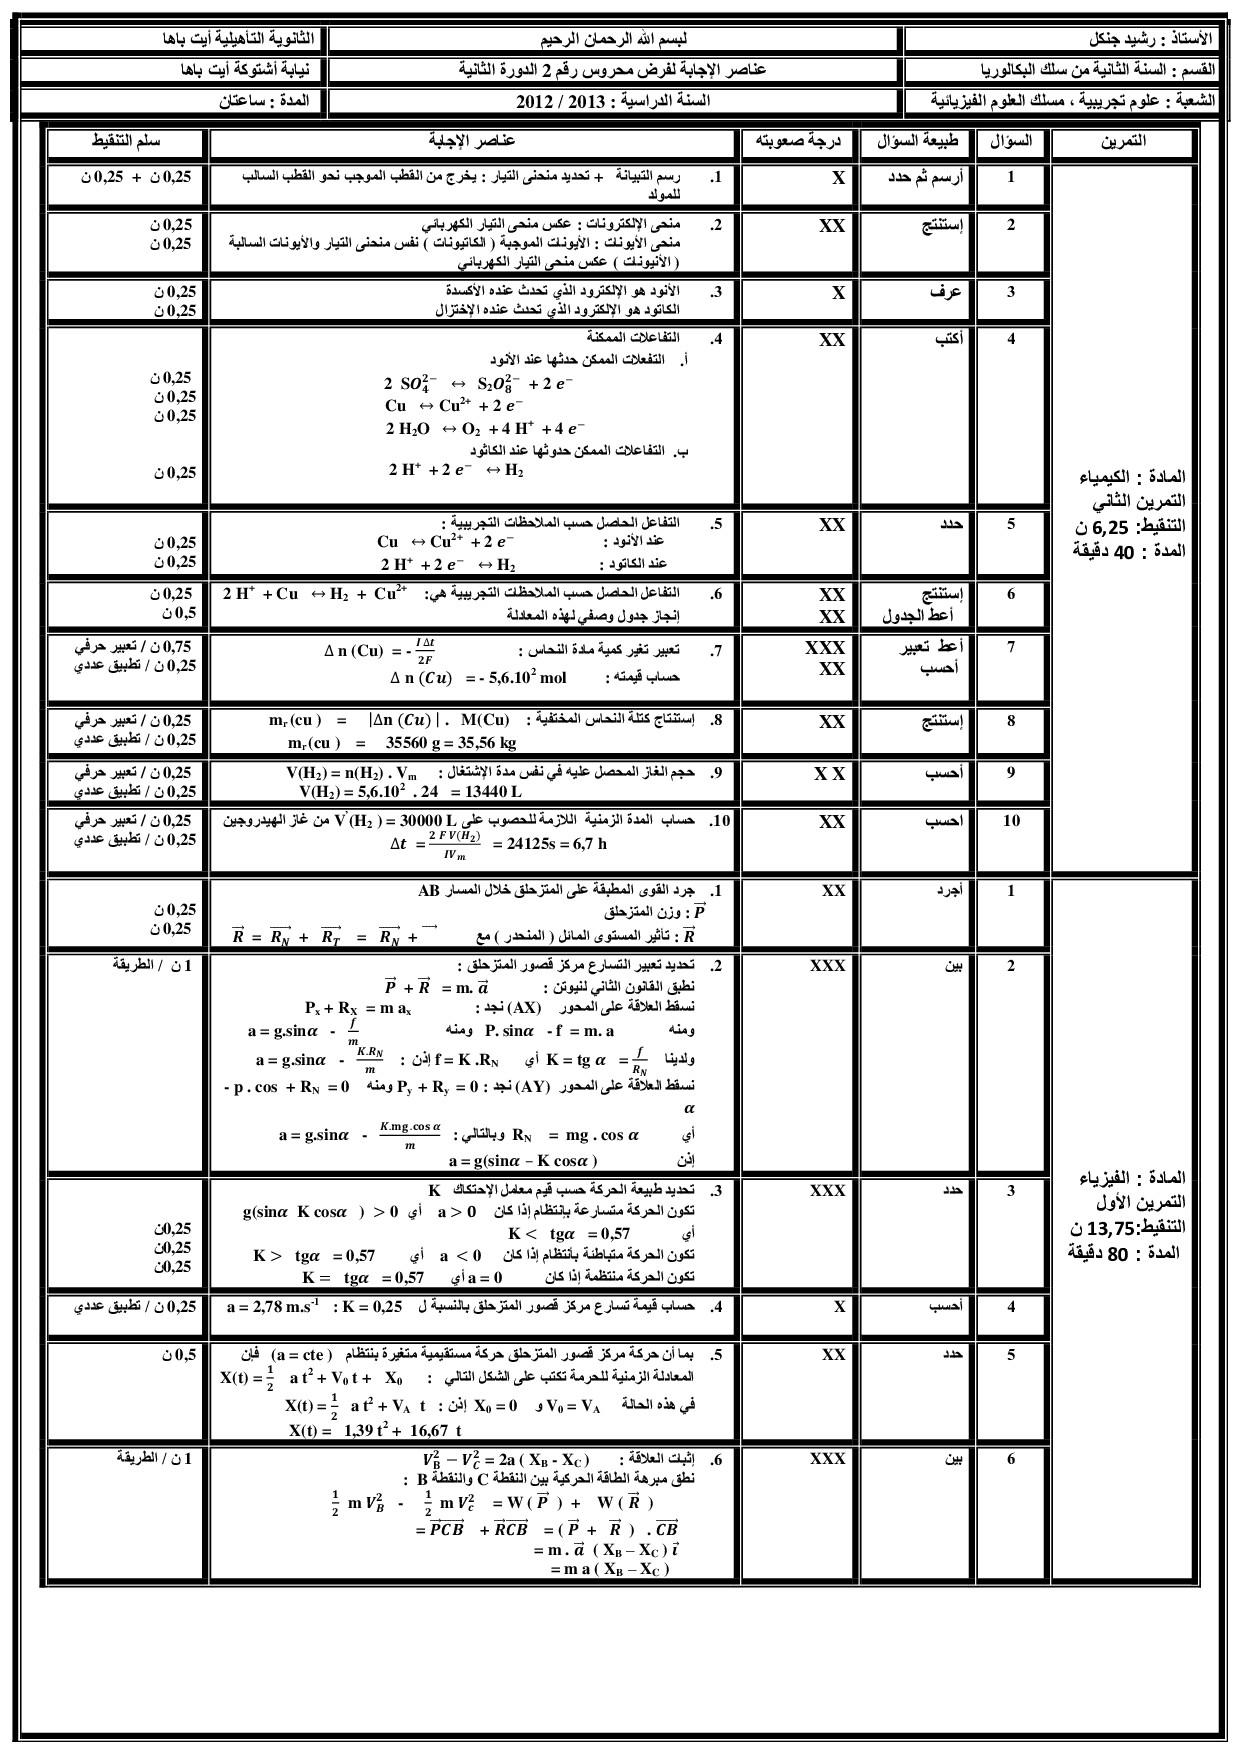 الأستاذ : رشيد جنكل
لبسم الله الرحمان الرحيم
الثانوية التأهيلية أيت باها
القسم : السنة الثانية من سلك البكالوريا
عناصر الإجابة لفرض محروس رقم 2 الدورة الثانية
نيابة أشتوكة أيت باها
الشعبة : علوم تجريبية ، مسلك العلوم الفيزيائية
السنة الدراسية : 2013 / 2012
المدة : ساعتان
التمرين
السؤال
طبيعة السؤال
درجة صعوبته
عناصر الإجابة
سلم التنقيط
المادة : الكيمياء
التمرين الثاني
التنقيط: 6,25 ن
المدة : 40 دقيقة
1
أرسم ثم حدد
X
1. رسم التبيانة + تحديد منحنى التيار : يخرج من القطب الموجب نحو القطب السالب
للمولد
0,25 ن + 0,25 ن
2
إستنتج
XX
2. منحى الإلكترونات : عكس منحى التيار الكهربائي
منحى الأيونات : الأيونات الموجبة ( الكاتيونات ) نفس منحنى التيار والأيونات السالبة
( الأنيونات ) عكس منحى التيار الكهربائي
0,25 ن
0,25 ن
3
عرف
X
3. الأنود هو الإلكترود الذي تحدث عنده الأكسدة
الكاتود هو الإلكترود الذي تحدث عنده الإختزال
0,25 ن
0,25 ن
4
أكتب
XX
4. التفاعلات الممكنة
أ. التفعلات الممكن حدثها عند الأنود
2 SO₄²⁻ ↔ S₂O₈²⁻ + 2 e⁻
Cu ↔ Cu²⁺ + 2 e⁻
2 H₂O ↔ O₂ + 4 H⁺ + 4 e⁻
ب. التفاعلات الممكن حدوثها عند الكاثود
2 H⁺ + 2 e⁻ ↔ H₂
0,25 ن
0,25 ن
0,25 ن
0,25 ن
5
حدد
XX
5. التفاعل الحاصل حسب الملاحظات التجريبية :
عند الأنود : Cu ↔ Cu²⁺ + 2 e⁻
عند الكاتود : 2 H⁺ + 2 e⁻ ↔ H₂
0,25 ن
0,25 ن
6
إستنتج
أعط الجدول
XX
XX
6. التفاعل الحاصل حسب الملاحظات التجريبية هي: 2 H⁺ + Cu ↔ H₂ + Cu²⁺
إنجاز جدول وصفي لهذه المعادلة
0,25 ن
0,5 ن
7
أعط تعبير
أحسب
XXX
XX
7. تعبير تغير كمية مادة النحاس : Δ n (Cu) = - I Δt / 2F
حساب قيمته : Δ n (Cu) = - 5,6.10² mol
0,75 ن / تعبير حرفي
0,25 ن / تطبيق عددي
8
إستنتج
XX
8. إستنتاج كتلة النحاس المختفية : mr (cu ) = |Δn (Cu) | . M(Cu)
mr (cu ) = 35560 g = 35,56 kg
0,25 ن / تعبير حرفي
0,25 ن / تطبيق عددي
9
أحسب
X X
9. حجم الغاز المحصل عليه في نفس مدة الإشتغال : V(H₂) = n(H₂) . Vm
V(H₂) = 5,6.10² . 24 = 13440 L
0,25 ن / تعبير حرفي
0,25 ن / تطبيق عددي
10
احسب
XX
10. حساب المدة الزمنية اللازمة للحصوب على V'(H₂ ) = 30000 L من غاز الهيدروجين
Δt = 2 F V(H₂) / IVm = 24125s = 6,7 h
0,25 ن / تعبير حرفي
0,25 ن / تطبيق عددي
المادة : الفيزياء
التمرين الأول
التنقيط:13,75 ن
المدة : 80 دقيقة
1
أجرد
XX
1. جرد القوى المطبقة على المتزحلق خلال المسار AB
P⃗ : وزن المتزحلق
R⃗ : تأثير المستوى المائل ( المنحدر ) مع R⃗ = R⃗N + R⃗T = R⃗N + ⃗
0,25 ن
0,25 ن
2
بين
XXX
2. تحديد تعبير التسارع مركز قصور المتزحلق :
نطبق القانون الثاني لنيوتن : P⃗ + R⃗ = m. a⃗
نسقط العلاقة على المحور (AX) نجد : Px + RX = m ax
ومنه P. sinα - f = m. a ومنه a = g.sinα - f / m
ولدينا K = tg α = f / RN أي f = K .RN إذن : a = g.sinα - K.RN / m
نسقط العلاقة على المحور (AY) نجد : Py + Ry = 0 ومنه - p . cos + RN = 0
α
أي RN = mg . cos α وبالتالي : a = g.sinα - K.mg.cos α / m
إذن a = g(sinα – K cosα )
1 ن / الطريقة
3
حدد
XXX
3. تحديد طبيعة الحركة حسب قيم معامل الإحتكاك K
تكون الحركة متسارعة بإنتظام إذا كان a > 0 أي g(sinα K cosα ) > 0
أي K < tgα = 0,57
تكون الحركة متباطئة بأنتظام إذا كان a < 0 أي K > tgα = 0,57
تكون الحركة منتظمة إذا كان a = 0 أي K = tgα = 0,57
0,25ن
0,25ن
0,25ن
4
أحسب
X
4. حساب قيمة تسارع مركز قصور المتزحلق بالنسبة ل K = 0,25 : a = 2,78 m.s⁻¹
0,25 ن / تطبيق عددي
5
حدد
XX
5. بما أن حركة مركز قصور المتزحلق حركة مستقيمية متغيرة بنتظام (a = cte ) فإن
المعادلة الزمنية للحرمة تكتب على الشكل التالي : X(t) = 1/2 a t² + V₀ t + X₀
في هذه الحالة V₀ = VA و X₀ = 0 إذن : X(t) = 1/2 a t² + VA t
X(t) = 1,39 t² + 16,67 t
0,5 ن
6
بين
XXX
6. إثبات العلاقة : VB² − VC² = 2a ( XB - XC )
نطق مبرهة الطاقة الحركية بين النقطة C والنقطة B :
1/2 m VB² - 1/2 m Vc² = W ( P⃗ ) + W ( R⃗ )
= P⃗CB⃗ + R⃗CB⃗ = ( P⃗ + R⃗ ) . CB⃗
= m . a⃗ ( XB – XC ) i⃗
= m a ( XB – XC )
1 ن / الطريقة